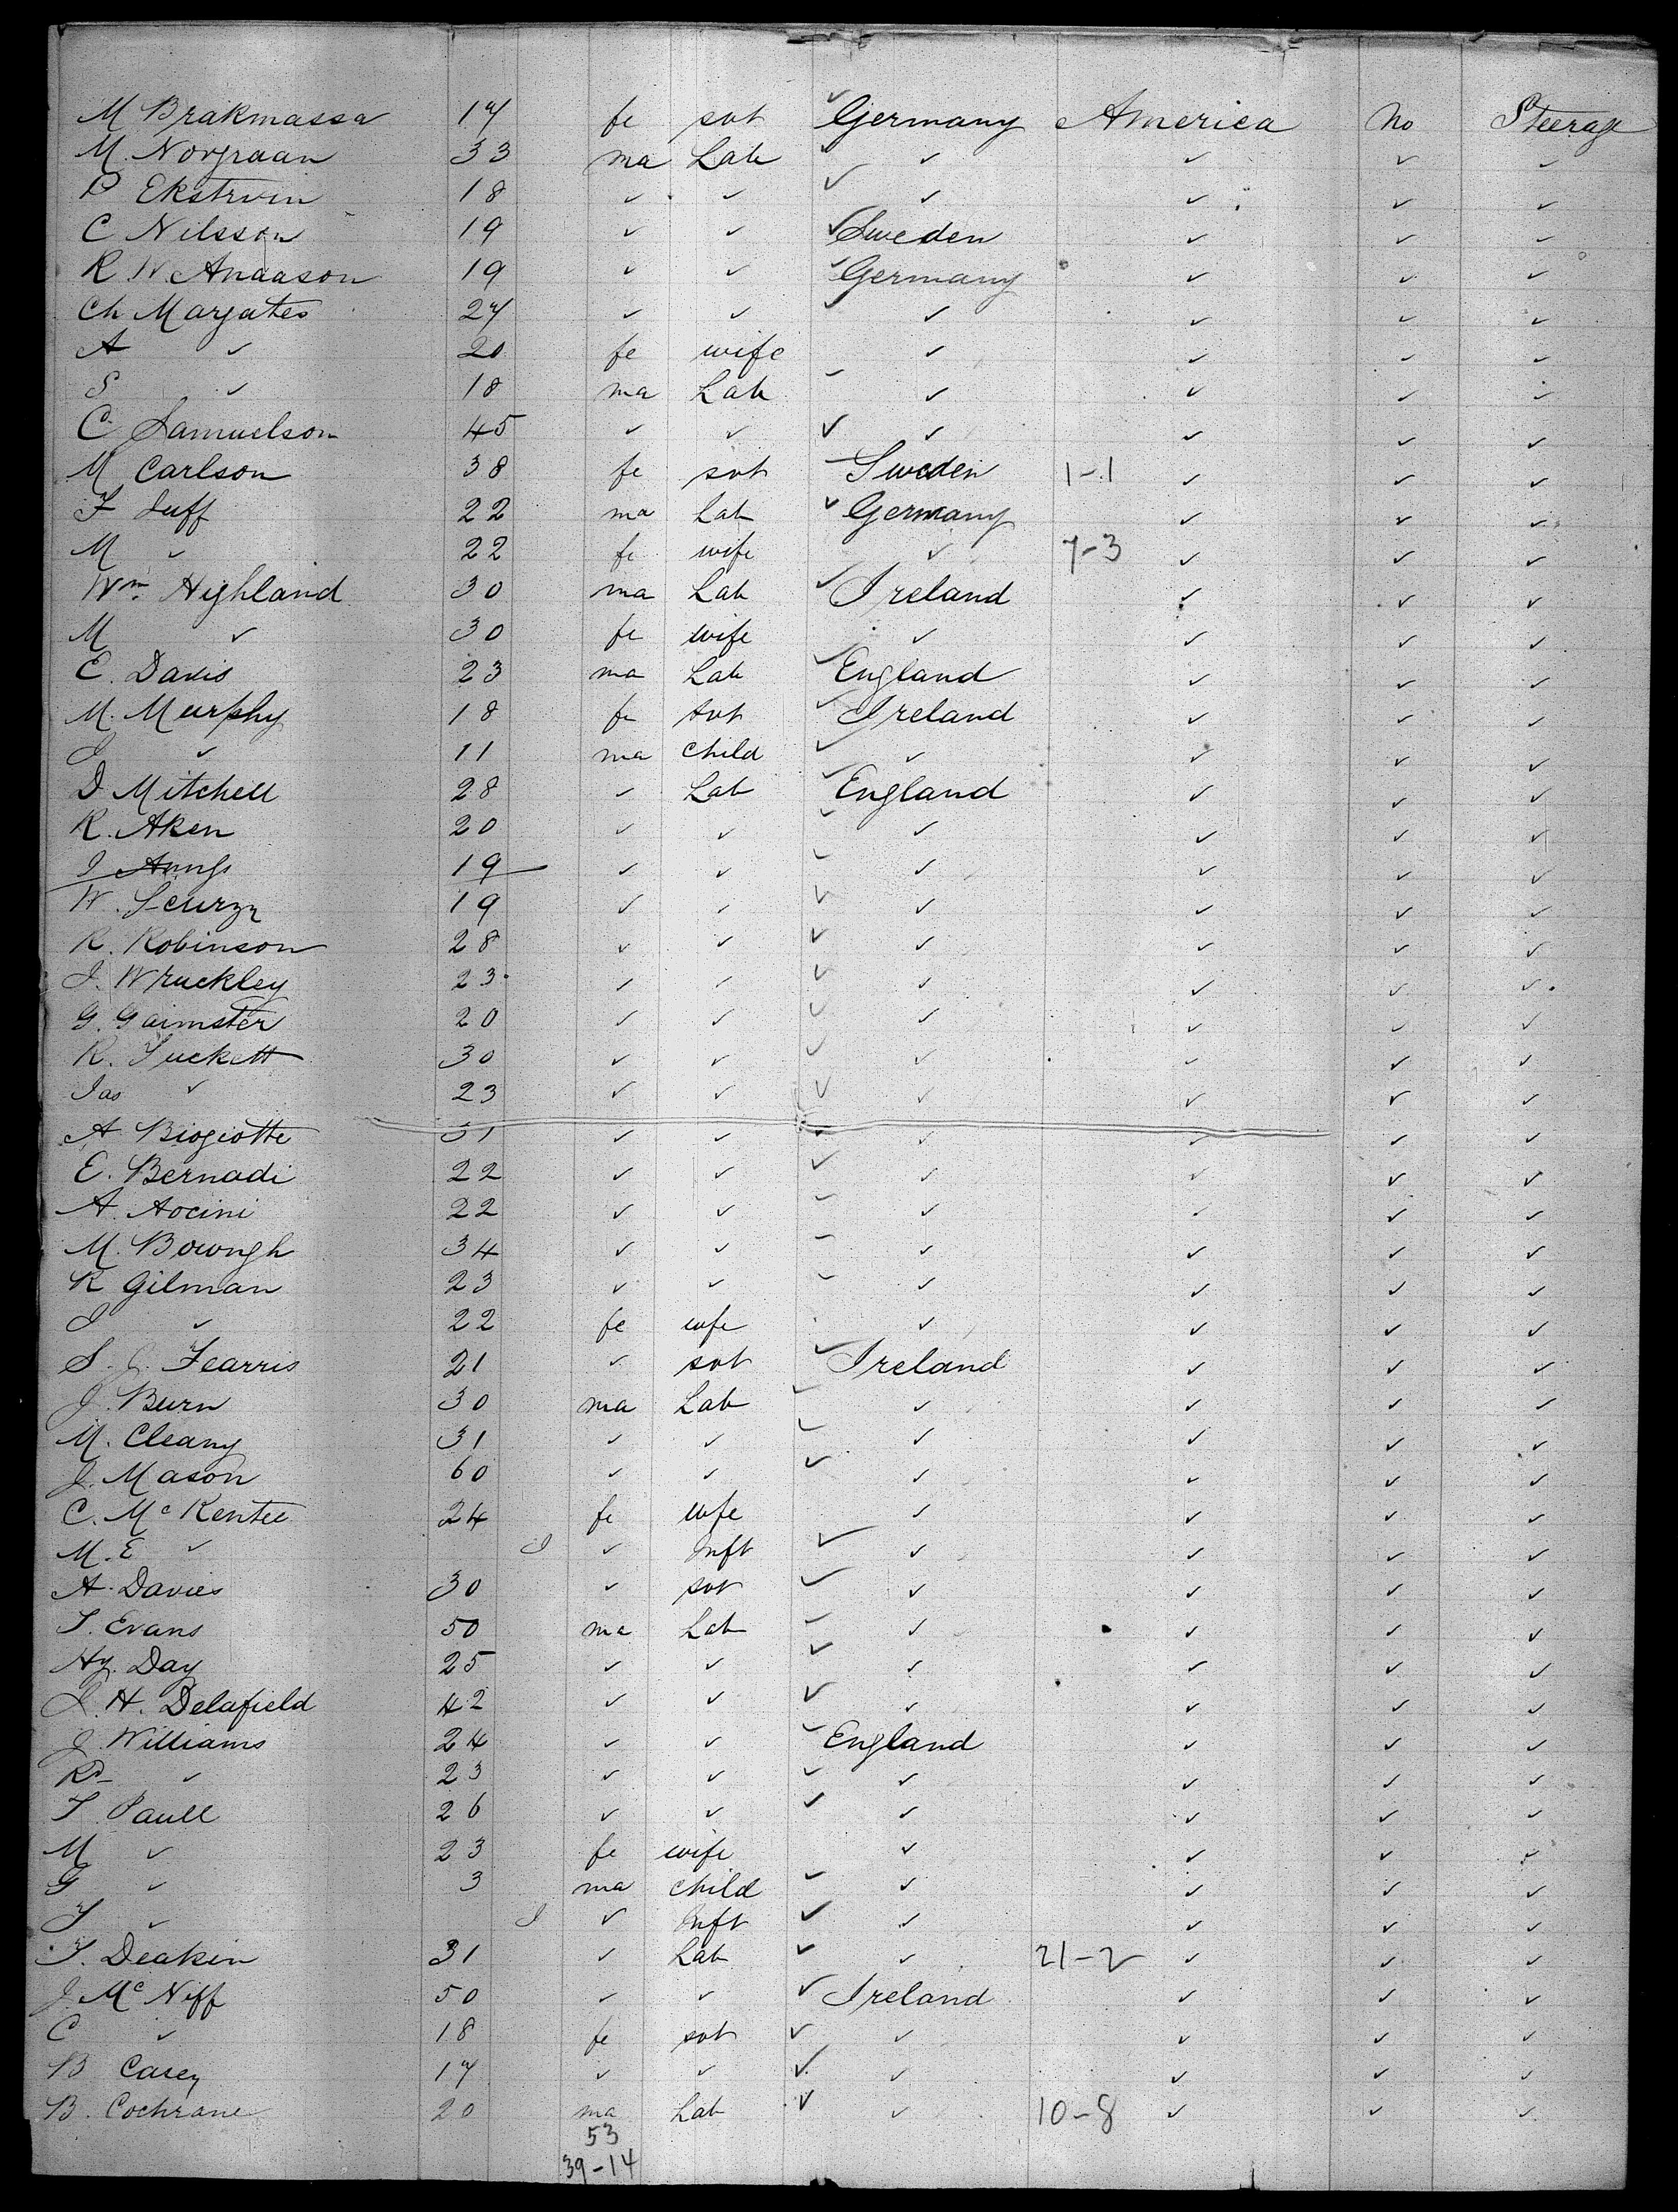 M Brakmassa 17 fe svt ✓ Germany America No Steerage
M. Norgraan 33 ma Lab ✓ ✓ ✓ ✓ ✓
P Ekstrvin 18 ✓ ✓ ✓ ✓ ✓ ✓ ✓
C Nilsson 19 ✓ ✓ ✓ Sweden ✓ ✓ ✓
R. N. Anaason 19 ✓ ✓ ✓ Germany ✓ ✓ ✓
Ch Margates 27 ✓ ✓ ✓ ✓ ✓ ✓ ✓
A ✓ 20 fe wife ✓ ✓ ✓ ✓
S ✓ 18 ma Lab ✓ ✓ ✓ ✓ ✓
C. Samuelson 45 ✓ ✓ ✓ ✓ ✓ ✓ ✓
M Carlson 38 fe svt Sweden 1-1 ✓ ✓ ✓
F Luff 22 ma Lab ✓ Germany ✓ ✓ ✓
M ✓ 22 fe wife ✓ 7-3 ✓ ✓ ✓
Wm. Highland 30 ma Lab ✓ Ireland ✓ ✓ ✓
M ✓ 30 fe wife ✓ ✓ ✓ ✓
E. Davis 23 ma Lab ✓ England ✓ ✓ ✓
M. Murphy 18 fe svt ✓ Ireland ✓ ✓ ✓
J ✓ 11 ma child ✓ ✓ ✓ ✓ ✓
D Mitchell 28 ✓ Lab ✓ England ✓ ✓ ✓
R. Aken 20 ✓ ✓ ✓ ✓ ✓ ✓ ✓
J 19 ✓ ✓ ✓ ✓ ✓ ✓ ✓
W. 19 ✓ ✓ ✓ ✓ ✓ ✓ ✓
R. Robinson 28 ✓ ✓ ✓ ✓ ✓ ✓ ✓
J. Wruckley 23 ✓ ✓ ✓ ✓ ✓ ✓ ✓
G. Gaimster 20 ✓ ✓ ✓ ✓ ✓ ✓ ✓
R. Tuckett 30 ✓ ✓ ✓ ✓ ✓ ✓ ✓
Jas ✓ 23 ✓ ✓ ✓ ✓ ✓ ✓ ✓
A. Biogiotte 31 ✓ ✓ ✓ ✓ ✓ ✓ ✓
E. Bernadi 22 ✓ ✓ ✓ ✓ ✓ ✓ ✓
A. Aocini 22 ✓ ✓ ✓ ✓ ✓ ✓ ✓
M. Bowngh 34 ✓ ✓ ✓ ✓ ✓ ✓ ✓
R Gilman 23 ✓ ✓ ✓ ✓ ✓ ✓ ✓
J ✓ 22 fe wife ✓ ✓ ✓ ✓
S. J. Fearris 21 ✓ svt ✓ Ireland ✓ ✓ ✓
J. Burn 30 ma Lab ✓ ✓ ✓ ✓ ✓
M. Cleany 31 ✓ ✓ ✓ ✓ ✓ ✓ ✓
J. Mason 60 ✓ ✓ ✓ ✓ ✓ ✓ ✓
C. McKentee 24 fe wfe ✓ ✓ ✓ ✓
M. E ✓ I ✓ Inft ✓ ✓ ✓ ✓ ✓
A. Davies 30 ✓ svt ✓ ✓ ✓ ✓ ✓
T. Evans 50 ma Lab ✓ ✓ ✓ ✓ ✓
Hy. Day 25 ✓ ✓ ✓ ✓ ✓ ✓ ✓
J. H. Delafield 42 ✓ ✓ ✓ ✓ ✓ ✓ ✓
J. Williams 24 ✓ ✓ ✓ England ✓ ✓ ✓
Rd ✓ 23 ✓ ✓ ✓ ✓ ✓ ✓ ✓
T. Paull 26 ✓ ✓ ✓ ✓ ✓ ✓ ✓
M ✓ 23 fe wife ✓ ✓ ✓ ✓
G ✓ 3 ma child ✓ ✓ ✓ ✓ ✓
T ✓ I ✓ Inft ✓ ✓ ✓ ✓ ✓
T. Deakin 31 ✓ Lab ✓ ✓ 21-2 ✓ ✓ ✓
J. McNiff 50 ✓ ✓ ✓ Ireland ✓ ✓ ✓
C ✓ 18 fe svt ✓ ✓ ✓ ✓ ✓
B Casey 17 ✓ ✓ ✓ ✓ ✓ ✓ ✓
B. Cochrane 20 ma Lab ✓ ✓ 10-8 ✓ ✓ ✓
53
39-14